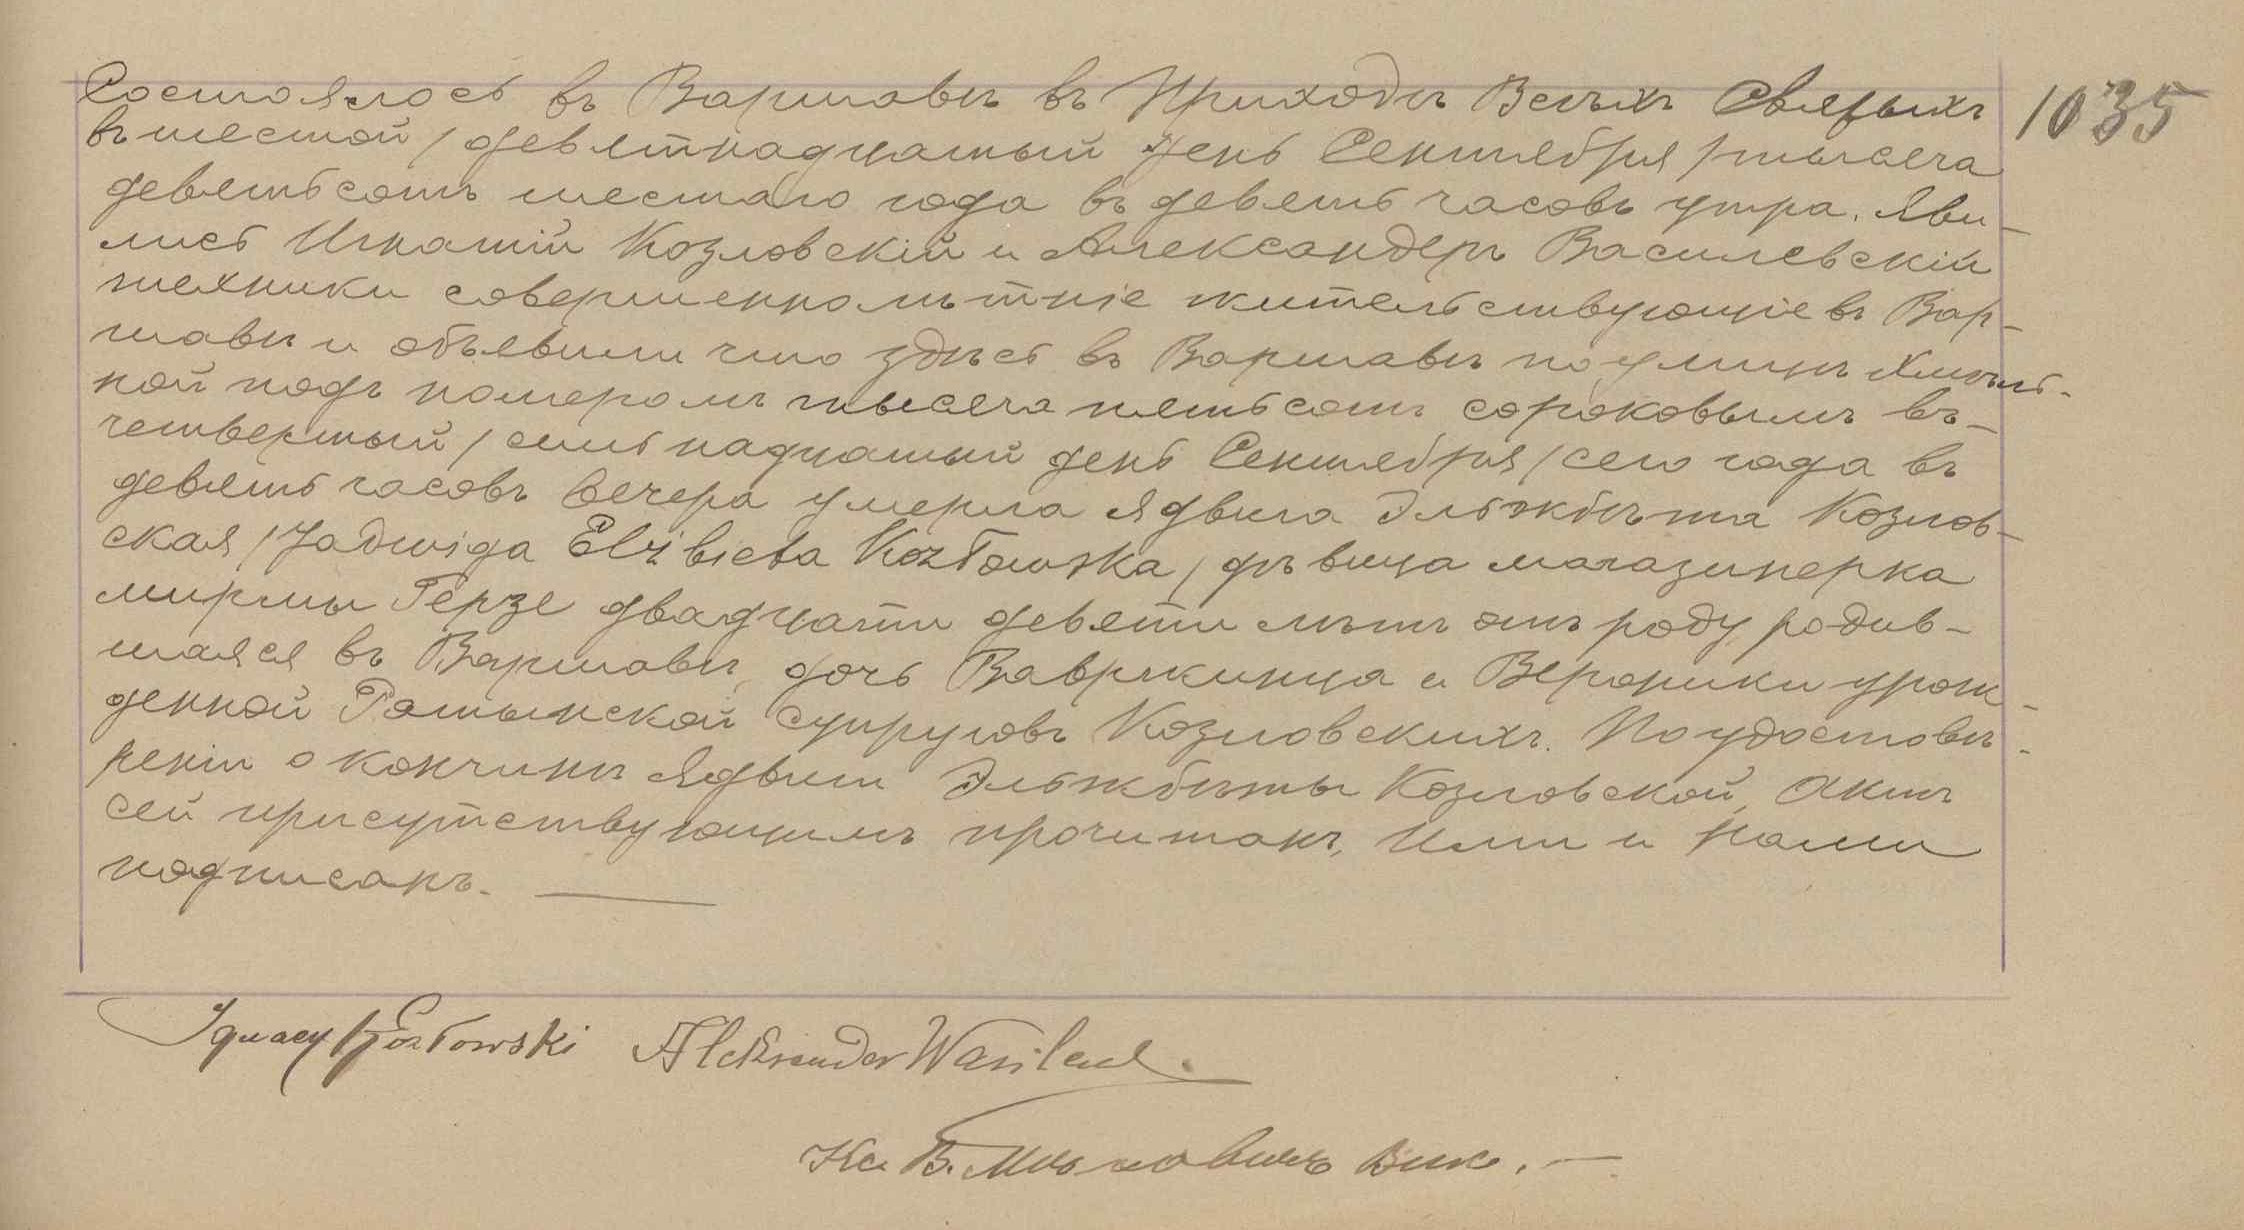 Состоялось въ Варшавѣ въ Приходѣ Всѣхъ Святыхъ 1035
въ шестой / девятнадцатый день Сентября / тысяча
девятьсотъ шестаго года въ девять часовъ утра. Яви-
лись Игнатій Козловскій и Александеръ Василевскій
техники совершеннолѣтніе жительствующіе въ Вар-
шавѣ и объявили что здѣсь въ Варшавѣ по улицѣ Хмѣль-
ной подъ номеромъ тысяча пятьсотъ сороковымъ въ-
четвертый / семьнадцатый день Сентября / сего года въ
девять часовъ вечера умерла Ядвига Эльжбѣта Козлов-
ская / Jadwiga Elżbieta Kozłowska / дѣвица магазинерка
мирмы Герзе двадцати девяти лѣтъ отъ роду, родив-
шаяся въ Варшавѣ, дочь Вавржинца и Вероники урож-
денной Ратынской супруговъ Козловскихъ. По удостовѣ-
реніи о кончинѣ Ядвиги Эльжбѣты Козловской, Актъ
сей присутствующимъ прочитанъ, Ими и Нами
подписанъ.
Ignacy Kozłowski Aleksander Wasilew
Кс. В. Вик.